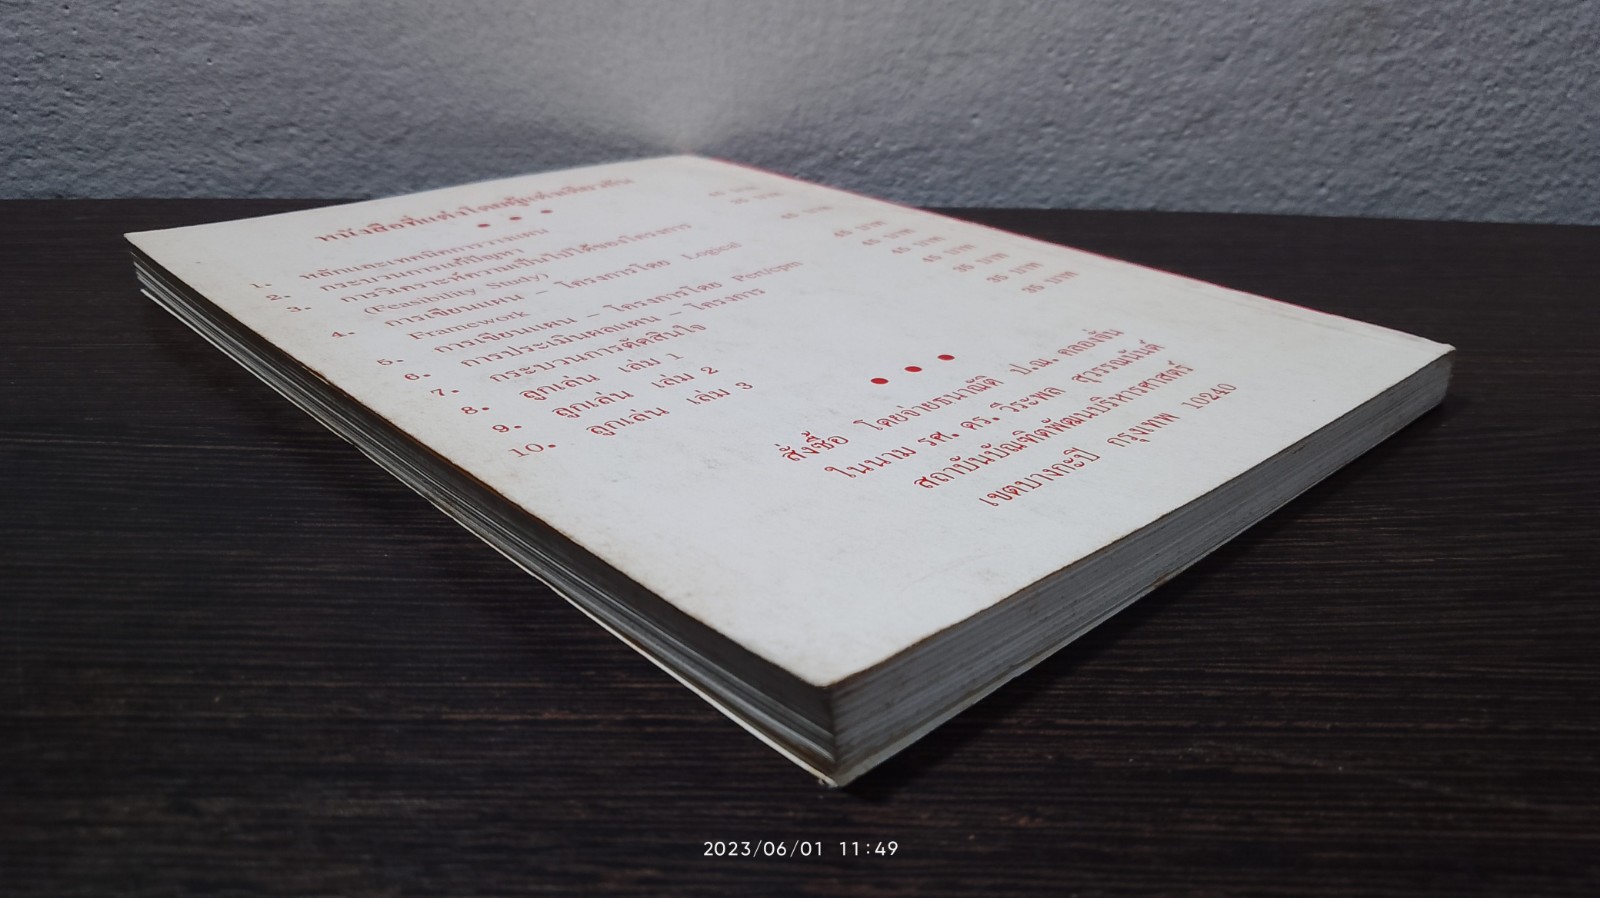 หนังสือที่แต่งโดยผู้แต่งเดียวกัน
1. หลักและเทคนิคการวางแผน 65 บาท
2. กระบวนการแก้ปัญหา 35 บาท
3. การวิเคราะห์ความเป็นไปได้ของโครงการ
(Feasibility Study) 65 บาท
4. การเขียนแผน – โครงการโดย Logical
Framework 65 บาท
5. การเขียนแผน – โครงการโดย Pert/cpm 65 บาท
6. การประเมินผลแผน – โครงการ 65 บาท
7. กระบวนการตัดสินใจ 45 บาท
8. ลูกเล่น เล่ม 1 35 บาท
9. ลูกเล่น เล่ม 2 35 บาท
10. ลูกเล่น เล่ม 3 35 บาท
สั่งซื้อ โดยจ่ายธนาณัติ ป.ณ. คลองจั่น
ในนาม รศ. ดร. วีระพล สุวรรณนันต์
สถาบันบัณฑิตพัฒนบริหารศาสตร์
เขตบางกะปิ กรุงเทพ 10240
2023/06/01 11:49